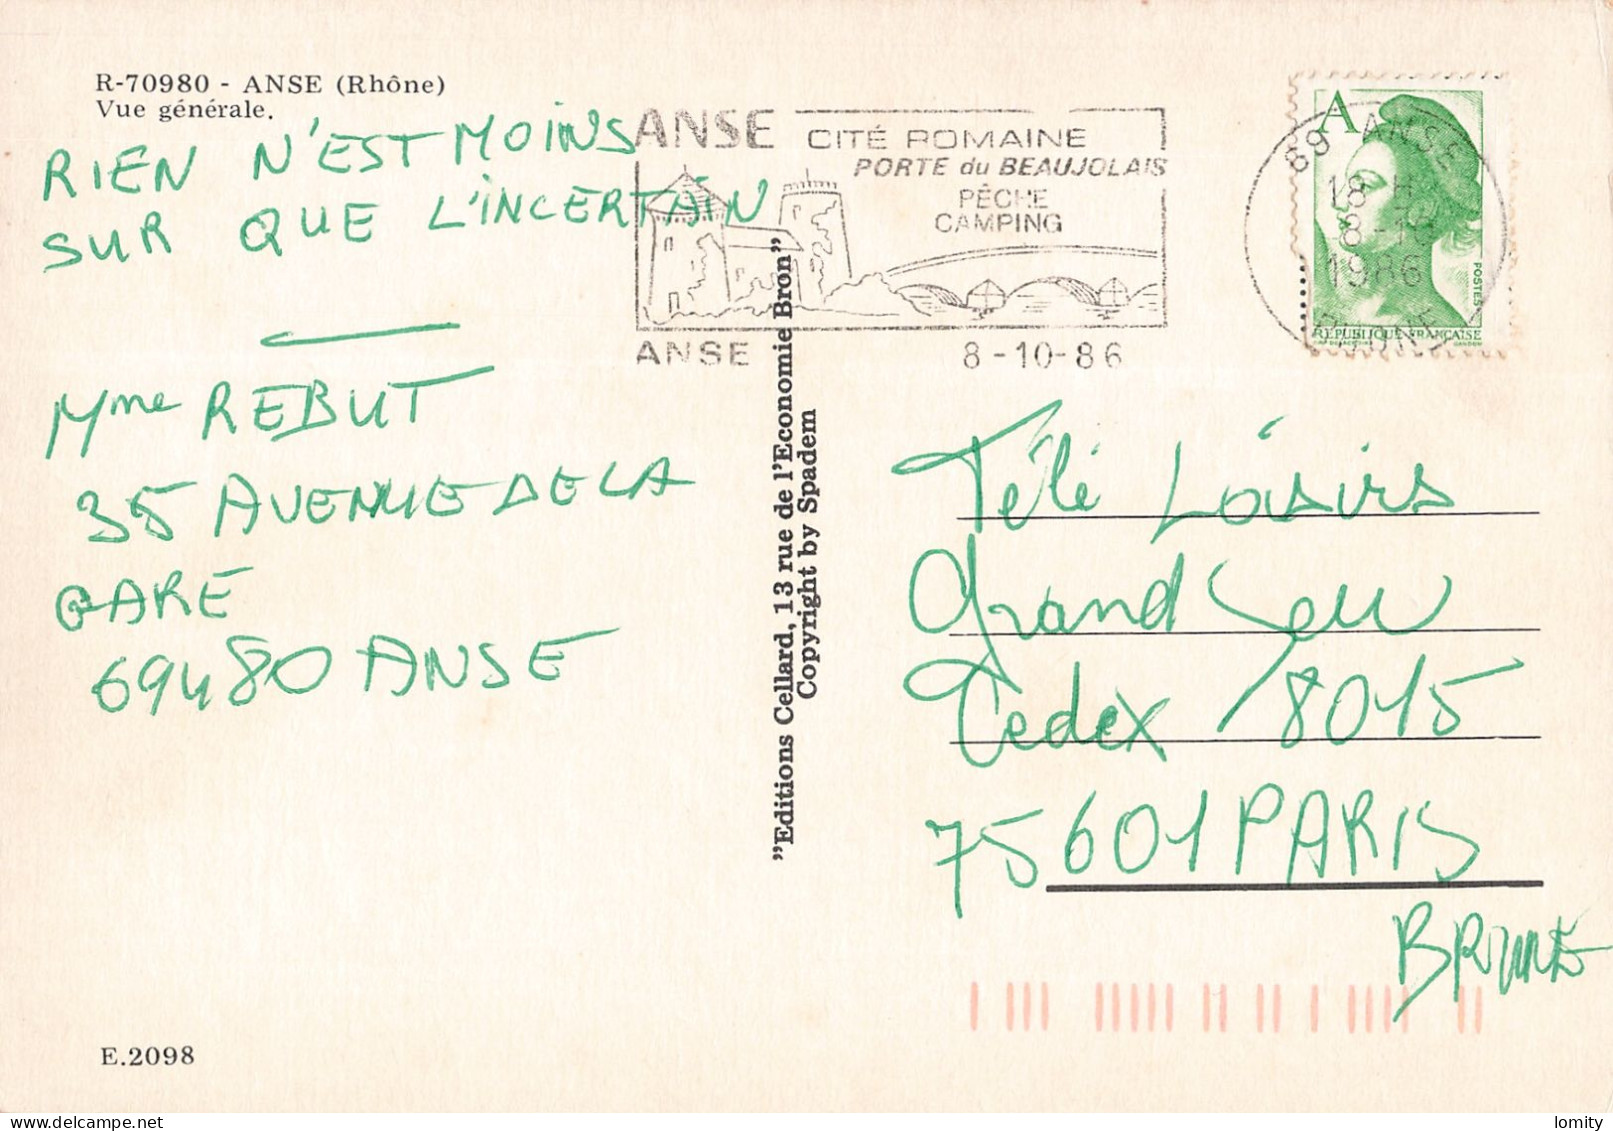 R-70980 - ANSE (Rhône)
Vue générale.
RIEN N'EST MOINS
SUR QUE L'INCERTAIN
Mme REBUT
35 AVENUE DE LA
GARE
69480 ANSE
E.2098
"Editions Cellard, 13 rue de l'Economie Bron"
Copyright by Spadem
ANSE CITÉ ROMAINE
PORTE du BEAUJOLAIS
PÊCHE
CAMPING
ANSE 8-10-86
69 ANSE
18 H
8-10
1986
RHONE
A
POSTES
REPUBLIQUE FRANCAISE
Télé Loisirs
Grand Jeu
Cedex 8015
75601 PARIS
BRUNE
lomity